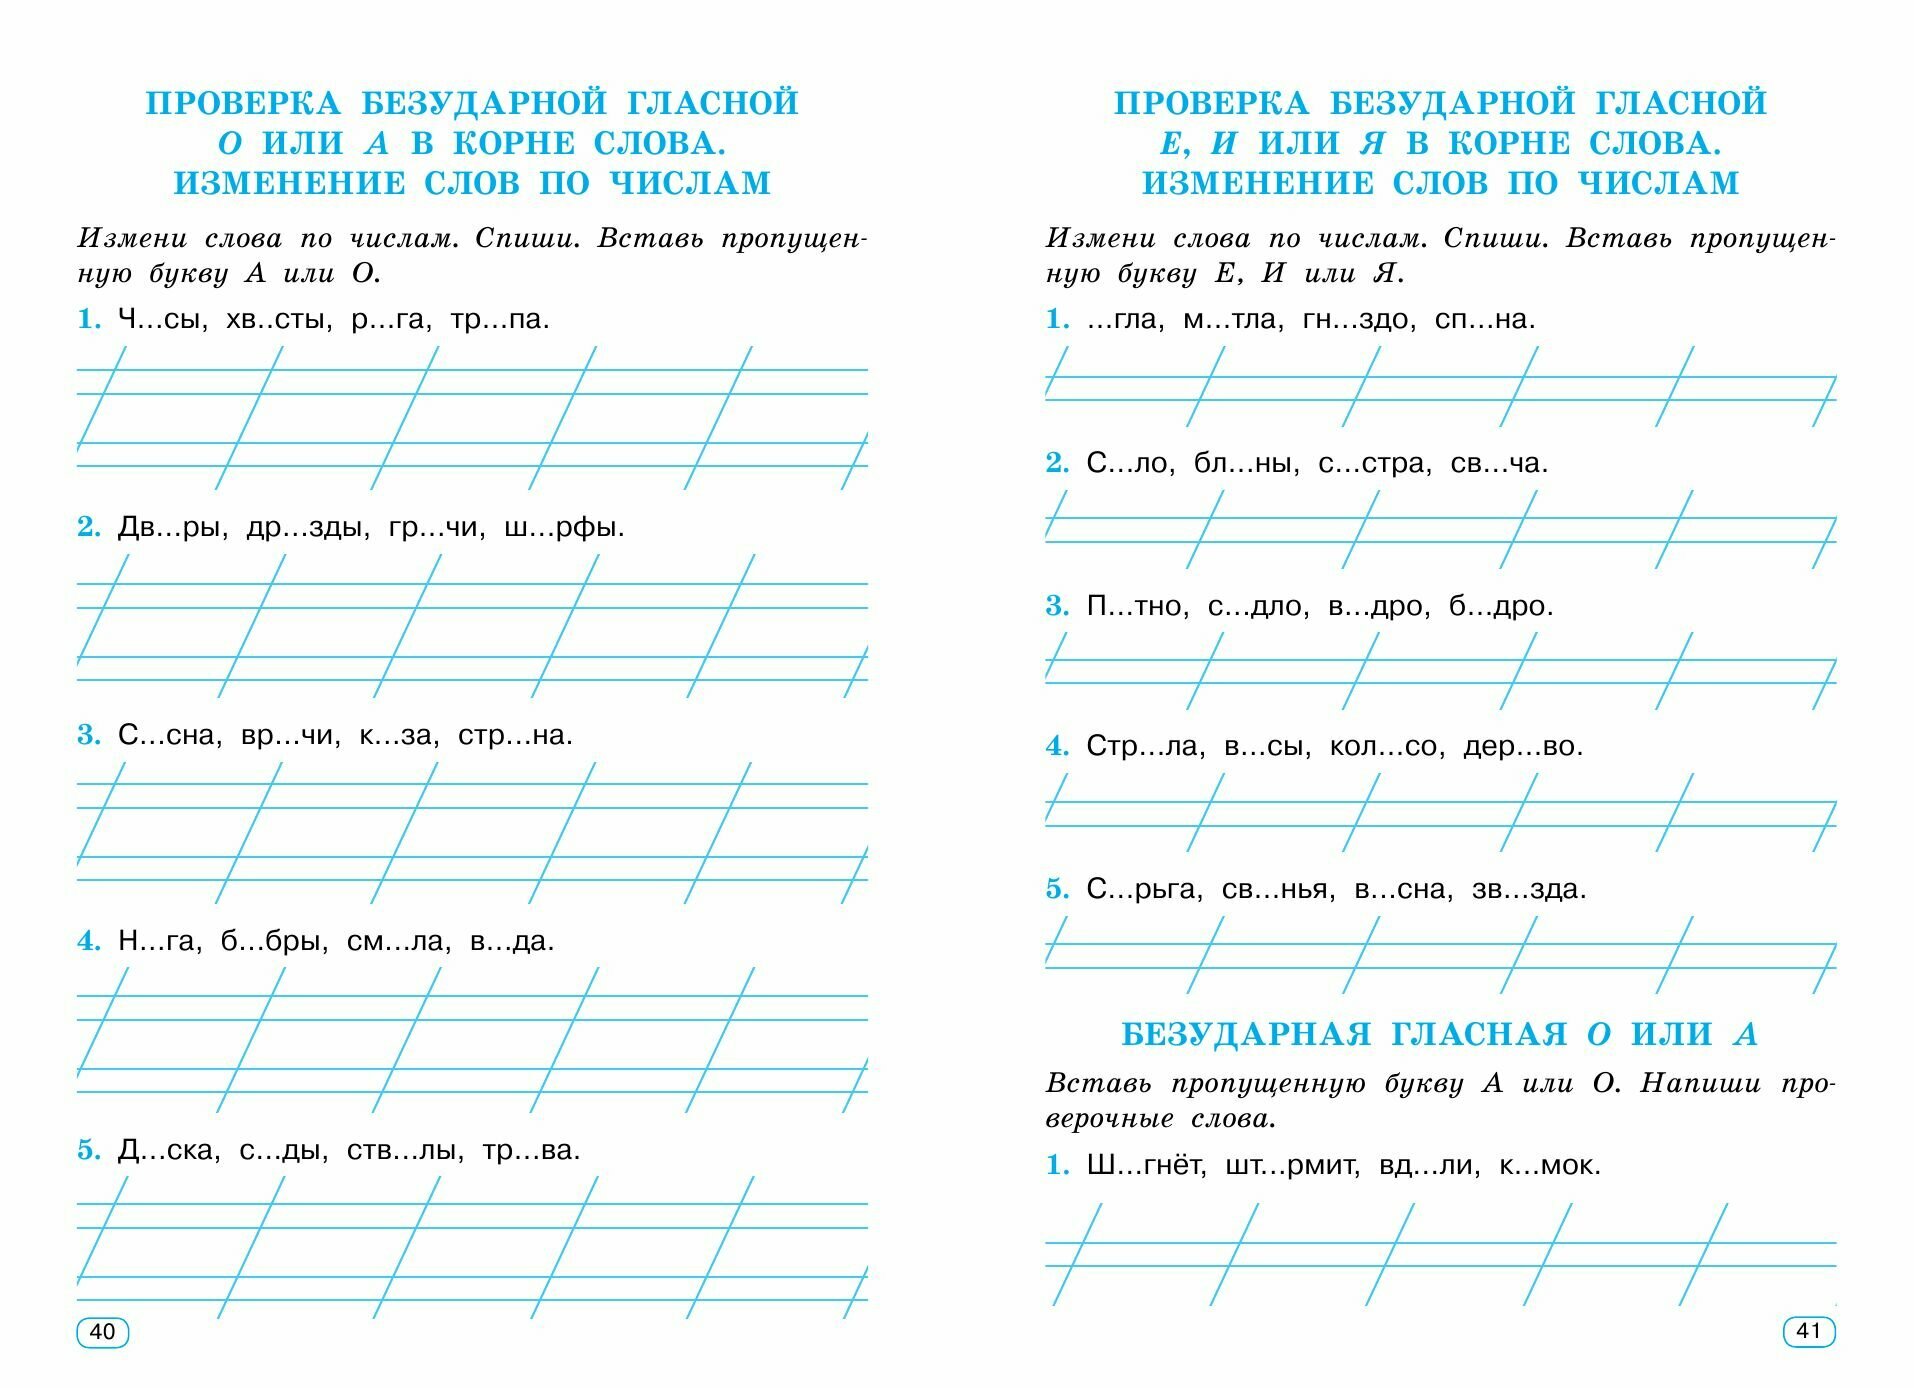 ПРОВЕРКА БЕЗУДАРНОЙ ГЛАСНОЙ
О ИЛИ А В КОРНЕ СЛОВА.
ИЗМЕНЕНИЕ СЛОВ ПО ЧИСЛАМ
Измени слова по числам. Спиши. Вставь пропущен-
ную букву А или О.
1. Ч...сы, хв..сты, р...га, тр...па.
2. Дв...ры, др...зды, гр...чи, ш...рфы.
3. С...сна, вр...чи, к...за, стр...на.
4. Н...га, б...бры, см...ла, в...да.
5. Д...ска, с...ды, ств...лы, тр...ва.
40
ПРОВЕРКА БЕЗУДАРНОЙ ГЛАСНОЙ
Е, И ИЛИ Я В КОРНЕ СЛОВА.
ИЗМЕНЕНИЕ СЛОВ ПО ЧИСЛАМ
Измени слова по числам. Спиши. Вставь пропущен-
ную букву Е, И или Я.
1. ...гла, м...тла, гн...здо, сп...на.
2. С...ло, бл...ны, с...стра, св...ча.
3. П...тно, с...дло, в...дро, б...дро.
4. Стр...ла, в...сы, кол...со, дер...во.
5. С...рьга, св...нья, в...сна, зв...зда.
БЕЗУДАРНАЯ ГЛАСНАЯ О ИЛИ А
Вставь пропущенную букву А или О. Напиши про-
верочные слова.
1. Ш...гнёт, шт...рмит, вд...ли, к...мок.
41